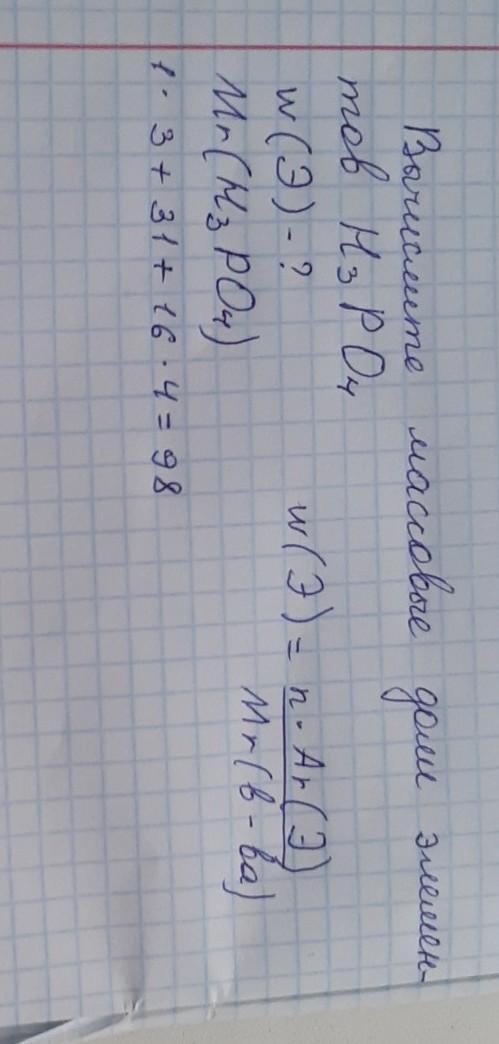 Вычислите массовые доли элемен-
тов H₃PO₄
w(Э) - ?
w(Э) = n · Ar(Э) / Mr(в-ва)
Mr(H₃PO₄)
1 · 3 + 31 + 16 · 4 = 98